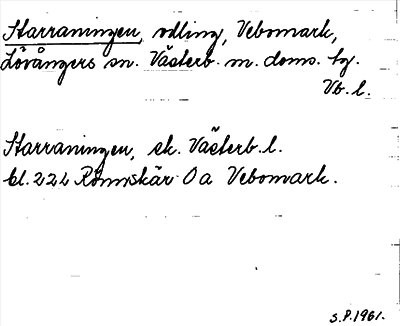 Starraningen, odling, Vebomark,
Lövångers sn. Västerb. m. doms. tg.
Vb. l.
Starraningen, ek. Västerb. l.
bl. 222 Rönnskär Oa Vebomark.
S.P. 1961.